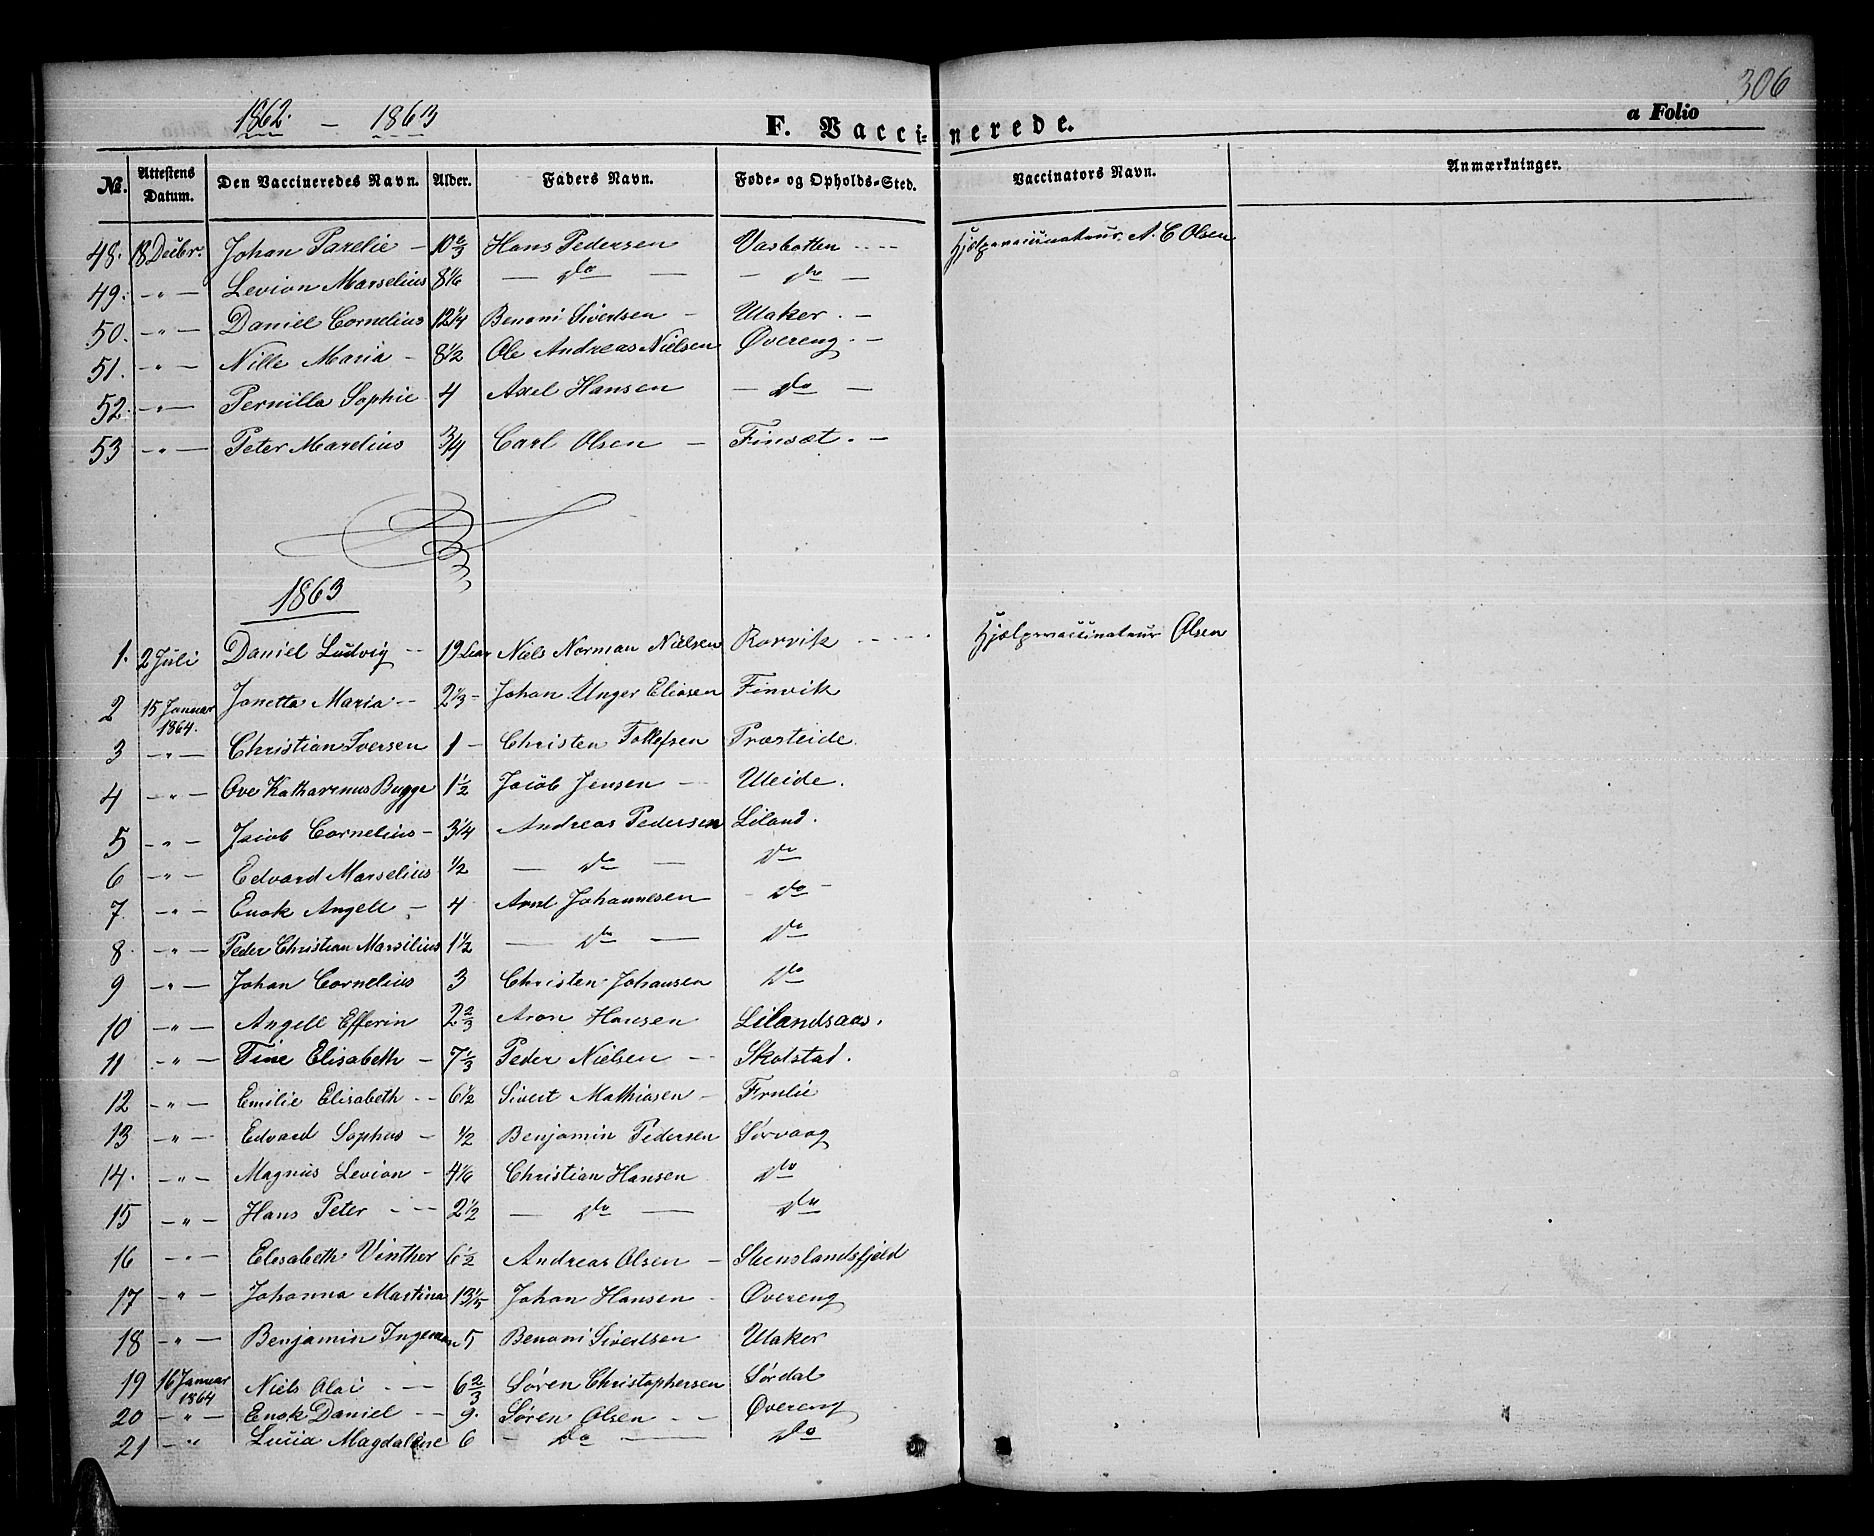 306
1862. – 1863
F. Vaccinerede.
a Folio
No. Attestens Datum. Den Vaccineredes Navn. Alder. Faders Navn. Føde- og Opholds-Sted. Vaccinators Navn. Anmærkninger.
48. 18 Decbr. Johan Parelie – 10 2/3 Hans Pedersen Vasbotten Hjelpevaccinateur A. C Olsen
49. – " – Levion Marselius 8 1/6 – do – – do –
50. – " – Daniel Cornelius 12 1/4 Benoni Sivertsen – Utaker. –
51. – " – Nille Maria – 8 1/2 Ole Andreas Nielsen Øvereng. –
52. – " – Pernilla Sophie 4 Axel Hansen – do –
53 – " – Peter Marelius 3/4 Carl Olsen – Finsæt. –
1863
1. 2 Juli Daniel Ludvig – 19 Niels Norman Nielsen Rørvik Hjelpevaccinateur Olsen
2 15 Januar 1864. Janetta Maria – 2 1/3 – Johan Unger Eliasen Finvik
3 – " – Christian Iversen 1 – Christen Tollefsen Præsteide.
4 – " – Ove Katharinus Bugge 1 1/2 Jacob Jensen – Uleide.
5 – " – Jacob Cornelius – 3 1/4 Andreas Pedersen Liland.
6 – " – Edvard Marselius 1/2 – do – do
7. – " – Enok Angell – 4 Arnt Johannesen – do –
8. – " – Peder Christian Marsilius 1 1/2 – do – do
9 – " – Johan Cornelius 3 Christen Johansen do
10 – " – Angell Efferin 2 2/3 Aron Hansen Lilandsaas.
11 – " – Tine Elisabeth – 7 1/3 Peder Nielsen – Skolstad.
12 – " – Emilie Elisabeth – 6 1/2 Sivert Mathiasen –
13 – " – Edvard Sophus – 1/2 Benjamin Pedersen Sørvaag
14. – " – Magnus Levion – 4 1/6 Christian Hansen do
15 – " – Hans Peter – 2 1/2 – do – do
16 – " Elisabeth Vinther 6 1/2 Andreas Olsen – Stenslandsfjeld
17 – " – Johanna Martina 13 1/5 Johan Hansen – Øvereng
18 – " – Benjamin Ingeman 5 Benoni Sivertsen Utaker
19 16 Januar 1864 Niels Olai – 6 2/3 Søren Christophersen Sørdal
20 – " – Enok Daniel – 9. Søren Olsen – Øvereng
21 – " Lucia Magdalene 6 – do – do